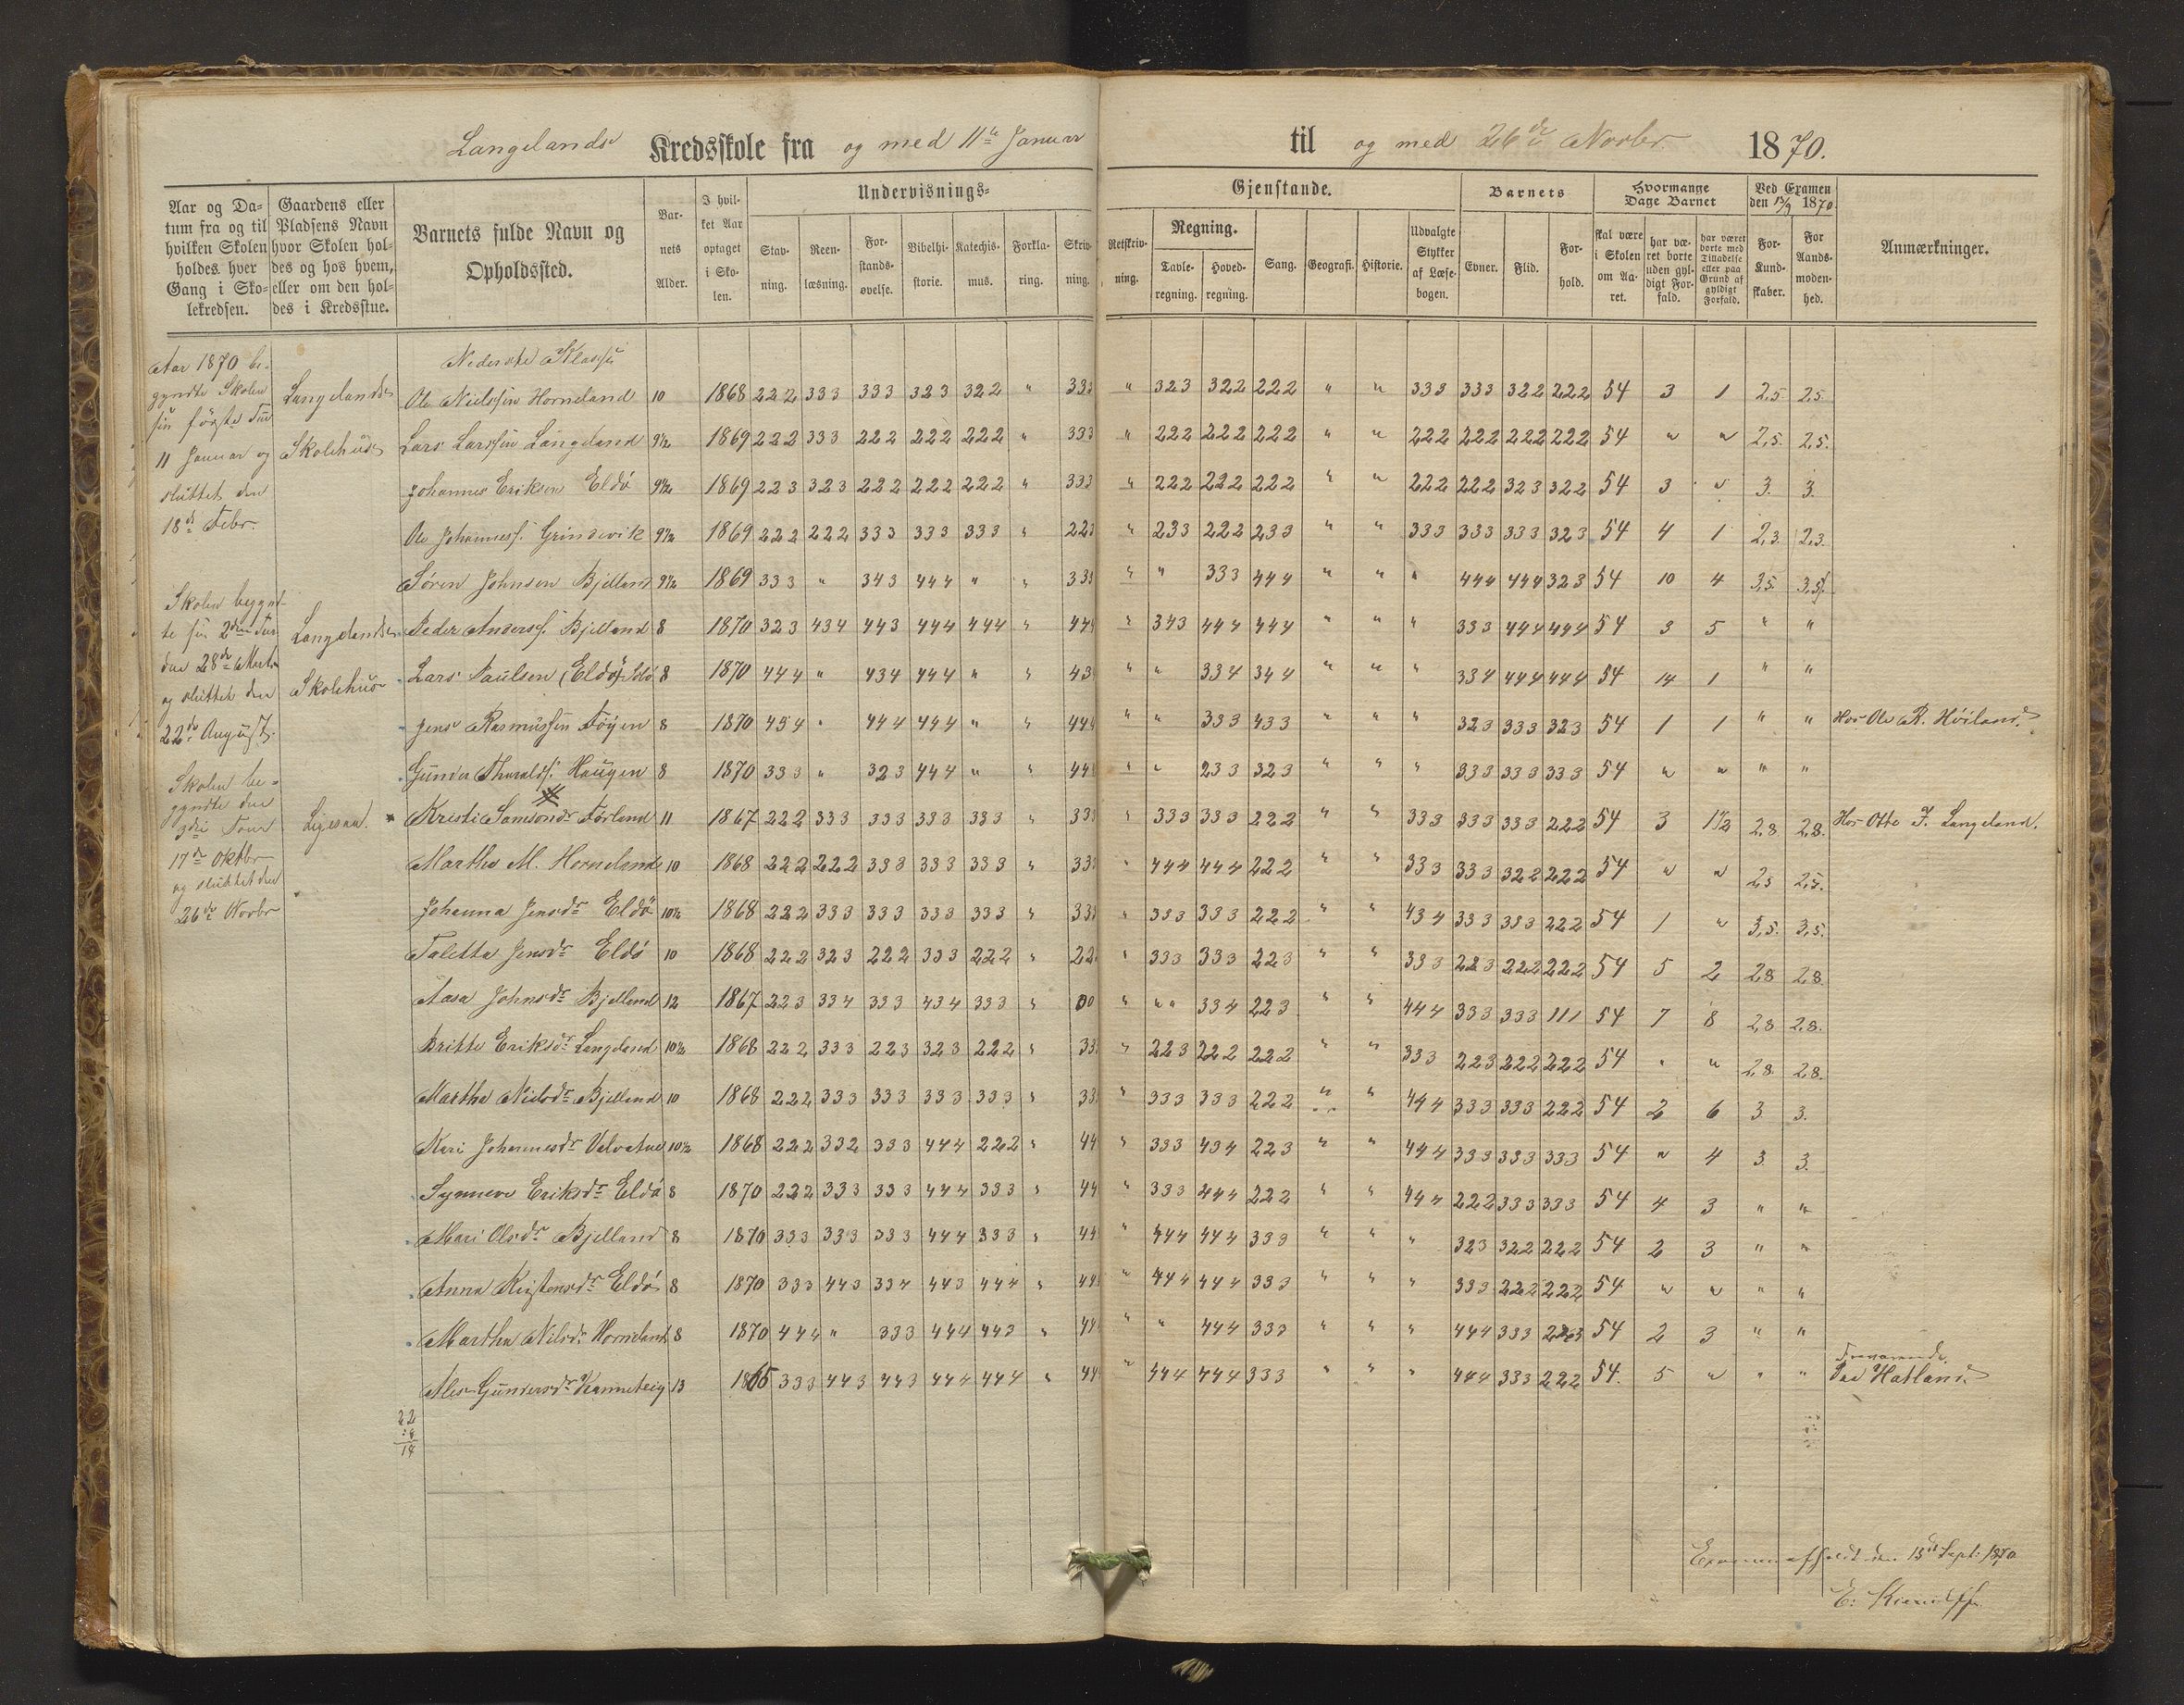 Langelands Kredsskole fra og med 11te Januar til og med 26de Novbr. 1870.
Aar og Da-
tum fra og til
hvilken Skolen
holdes hver
Gang i Sko-
lekredsen.
Gaardens eller
Pladsens Navn
hvor Skolen hol-
des og hos hvem,
eller om den hol-
des i Kredsstue.
Barnets fulde Navn og
Opholdssted.
Bar-
nets
Alder.
I hvil-
ket Aar
optaget
i Sko-
len.
Undervisnings-
Stav-
ning.
Reen-
læsning.
For-
stands-
øvelse.
Bibelhi-
storie.
Katechis-
mus.
Forkla-
ring.
Skriv-
ning.
Gjenstande.
Retskriv-
ning.
Regning.
Tavle-
regning.
Hoved-
regning.
Sang.
Geografi.
Historie.
Udvalgte
Stykker
af Læse-
bogen.
Barnets
Evner.
Flid.
For-
hold.
Hvormange
Dage Barnet
skal være
i Skolen
om Aa-
ret.
har væ-
ret borte
uden gyl-
digt For-
fald.
har været
borte med
Tilladelse
eller paa
Grund af
gyldigt
Forfald.
Ved Examen
den 13/9 1870
For-
Kund-
skaber.
For
Aands-
moden-
hed.
Anmærkninger.
Aar 1870 be-
gyndte Skolen
sin første Tur
11 Januar og
sluttet den
18de Febr.
Langelands
Skolehus
Skolen begynd-
te sin 2den Tur
den 28de Marts
og sluttet den
22de August.
Langelands
Skolehus
Skolen be-
gyndte den
3die Tour
17de Oktbr
og sluttet den
26de Novbr
Ligesaa.
Nederste Klasse
Ole Nielsen Horneland 10 1868 222 333 333 323 322 " 333 " 323 322 222 " " 333 333 322 222 54 3 1 2,5 2,5
Lars Larssen Langeland 9½ 1869 222 333 222 222 222 " 333 " 222 222 222 " " 222 222 222 222 54 " " 2,5. 2,5.
Johannes Eriksen Eldø 9½ 1869 223 323 222 222 222 " 333 " 222 222 222 " " 222 222 323 322 54 3 " 3. 3.
Ole Johanness. Grindevik 9½ 1869 222 222 333 333 333 " 223 " 233 222 233 " " 333 333 333 323 54 4 1 2,3. 2,3.
Søren Johnsen Bjelland 9½ 1869 333 " 343 444 " " 333 " " 333 444 " " " 444 444 323 54 10 4 3,5. 3,5.
Peder Anderss. Bjelland 8 1870 323 434 443 444 444 " 444 " 343 444 444 " " " 333 444 444 54 3 5 " "
Lars Paulsen (Eldø) 8 1870 444 " 434 444 " " 43 " " 334 344 " " " 334 444 444 54 14 1 " "
Jens Rasmussen Føyen 8 1870 454 " 444 444 " " 444 " " 333 433 " " " 323 333 323 54 1 1 " " Hos Ole R. Høiland.
Gunder Tharalds. Haugen 8 1870 333 " 323 444 " " 44 " " 233 323 " " " 333 333 333 54 " " " "
* Kristi Samsonsdr Førland 11 1867 222 333 333 333 333 " 333 " 333 333 222 " " 333 333 333 222 54 3 1½ 2,8. 2,8. Hos Otto J. Langeland.
Martha M. Horneland 10 1868 222 222 333 333 333 " 333 " 444 444 222 " " 333 333 322 222 54 " " 2,5 2,5.
Johanna Jensdr Eldø 10½ 1868 222 333 333 333 333 " 333 " 333 333 222 " " 434 333 333 222 54 1 " 3,5. 3,5.
Taletta Jensdr Eldø 10 1868 222 323 222 333 222 " 22 " 333 333 223 " " 333 223 222 222 54 5 2 2,8 2,8.
Aasa Johnsdr Bjelland 12 1867 223 334 333 434 333 " 00 " " " 334 223 " " 444 333 333 111 54 7 8 2,8 2,8.
Britte Eriksdr Langeland 10½ 1868 222 333 223 323 222 " 33 " 223 222 222 " " 333 223 222 222 54 " " 2,8. 2,8.
Martha Nielsdr Bjelland 10 1868 222 333 333 333 333 " 33 " 333 333 222 " " 444 333 333 222 54 2 6 3 3.
Kari Johannesdr Valvatne 10½ 1868 222 332 333 444 222 " 44 " 333 434 223 " " 444 333 333 333 54 " 4 3. 3.
Synneve Eriksdr Eldø 8 1870 222 333 333 444 333 " 44 " 333 444 222 " " 444 222 333 333 54 4 3 " "
Mari Olsdr Bjelland 8 1870 333 333 333 444 333 " 44 " 444 444 333 " " " 323 322 222 54 2 3 " "
Anna Kristensdr Eldø 8 1870 333 443 334 443 444 " 44 " 444 444 333 " " " 333 222 222 54 " " " "
Martha Nilsdr Horneland 8 1870 444 " 333 444 443 " 44 " " 444 333 " " " 444 333 223 54 2 3 " "
Fraværende
Ales Gundersdr Kanneteig 13 1865 333 443 443 444 444 " 44 " 444 444 333 " " " 444 333 222 54. 5 " " " Paa Hatland.
22
:8
14
Examen afholdt den 13de Sept: 1870